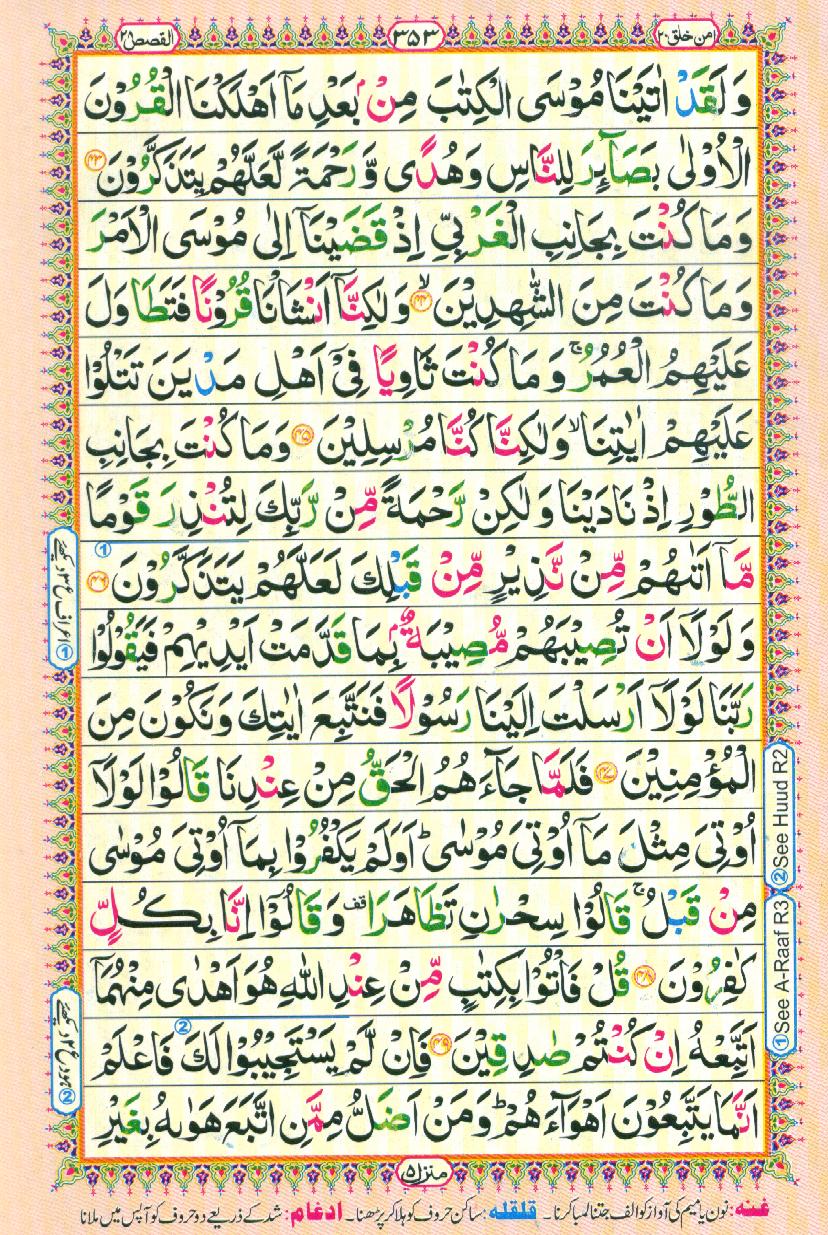 امن خلق ٢٠
٣٥٣
القصص ٢٨
وَ لَقَدْ اٰتَيْنَا مُوْسَى الْكِتٰبَ مِنْۢ بَعْدِ مَاۤ اَهْلَكْنَا الْقُرُوْنَ
الْاُوْلٰى بَصَآئِرَ لِلنَّاسِ وَ هُدًى وَّ رَحْمَةً لَّعَلَّهُمْ يَتَذَكَّرُوْنَ ﴿۴۳﴾
وَ مَا كُنْتَ بِجَانِبِ الْغَرْبِيِّ اِذْ قَضَيْنَاۤ اِلٰى مُوْسَى الْاَمْرَ
وَ مَا كُنْتَ مِنَ الشّٰهِدِيْنَ ﴿۴۴﴾ۙ وَ لٰكِنَّاۤ اَنْشَاْنَا قُرُوْنًا فَتَطَاوَلَ
عَلَيْهِمُ الْعُمُرُ ۚ وَ مَا كُنْتَ ثَاوِيًا فِيْۤ اَهْلِ مَدْيَنَ تَتْلُوْا
عَلَيْهِمْ اٰيٰتِنَا ۙ وَ لٰكِنَّا كُنَّا مُرْسِلِيْنَ ﴿۴۵﴾ وَ مَا كُنْتَ بِجَانِبِ
الطُّوْرِ اِذْ نَادَيْنَا وَ لٰكِنْ رَّحْمَةً مِّنْ رَّبِّكَ لِتُنْذِرَ قَوْمًا
مَّاۤ اَتٰىهُمْ مِّنْ نَّذِيْرٍ مِّنْ قَبْلِكَ لَعَلَّهُمْ يَتَذَكَّرُوْنَ ﴿۴۶﴾
وَ لَوْلَاۤ اَنْ تُصِيْبَهُمْ مُّصِيْبَةٌۢ بِمَا قَدَّمَتْ اَيْدِيْهِمْ فَيَقُوْلُوْا
رَبَّنَا لَوْلَاۤ اَرْسَلْتَ اِلَيْنَا رَسُوْلًا فَنَتَّبِعَ اٰيٰتِكَ وَ نَكُوْنَ مِنَ
الْمُؤْمِنِيْنَ ﴿۴۷﴾ فَلَمَّا جَآءَهُمُ الْحَقُّ مِنْ عِنْدِنَا قَالُوْا لَوْلَاۤ
اُوْتِيَ مِثْلَ مَاۤ اُوْتِيَ مُوْسٰى ؕ اَوَ لَمْ يَكْفُرُوْا بِمَاۤ اُوْتِيَ مُوْسٰى
مِنْ قَبْلُ ۚ قَالُوْا سِحْرٰنِ تَظَاهَرَا قف وَ قَالُوْۤا اِنَّا بِكُلٍّ
كٰفِرُوْنَ ﴿۴۸﴾ قُلْ فَاْتُوْا بِكِتٰبٍ مِّنْ عِنْدِ اللّٰهِ هُوَ اَهْدٰى مِنْهُمَاۤ
اَتَّبِعْهُ اِنْ كُنْتُمْ صٰدِقِيْنَ ﴿۴۹﴾ فَاِنْ لَّمْ يَسْتَجِيْبُوْا لَكَ فَاعْلَمْ
اَنَّمَا يَتَّبِعُوْنَ اَهْوَآءَهُمْ ؕ وَ مَنْ اَضَلُّ مِمَّنِ اتَّبَعَ هَوٰىهُ بِغَيْرِ
① اعراف ع ۳ دیکھئے
② ہود ع ۲ دیکھئے
②See Huud R2
①See A-Raaf R3
منزل ۵
غنه: نون یا میم کی آواز کو الف جتنا لمبا کرنا۔ قلقله: ساکن حروف کو ہلا کر پڑھنا۔ ادغام: شد کے ذریعے دو حروف کو آپس میں ملانا